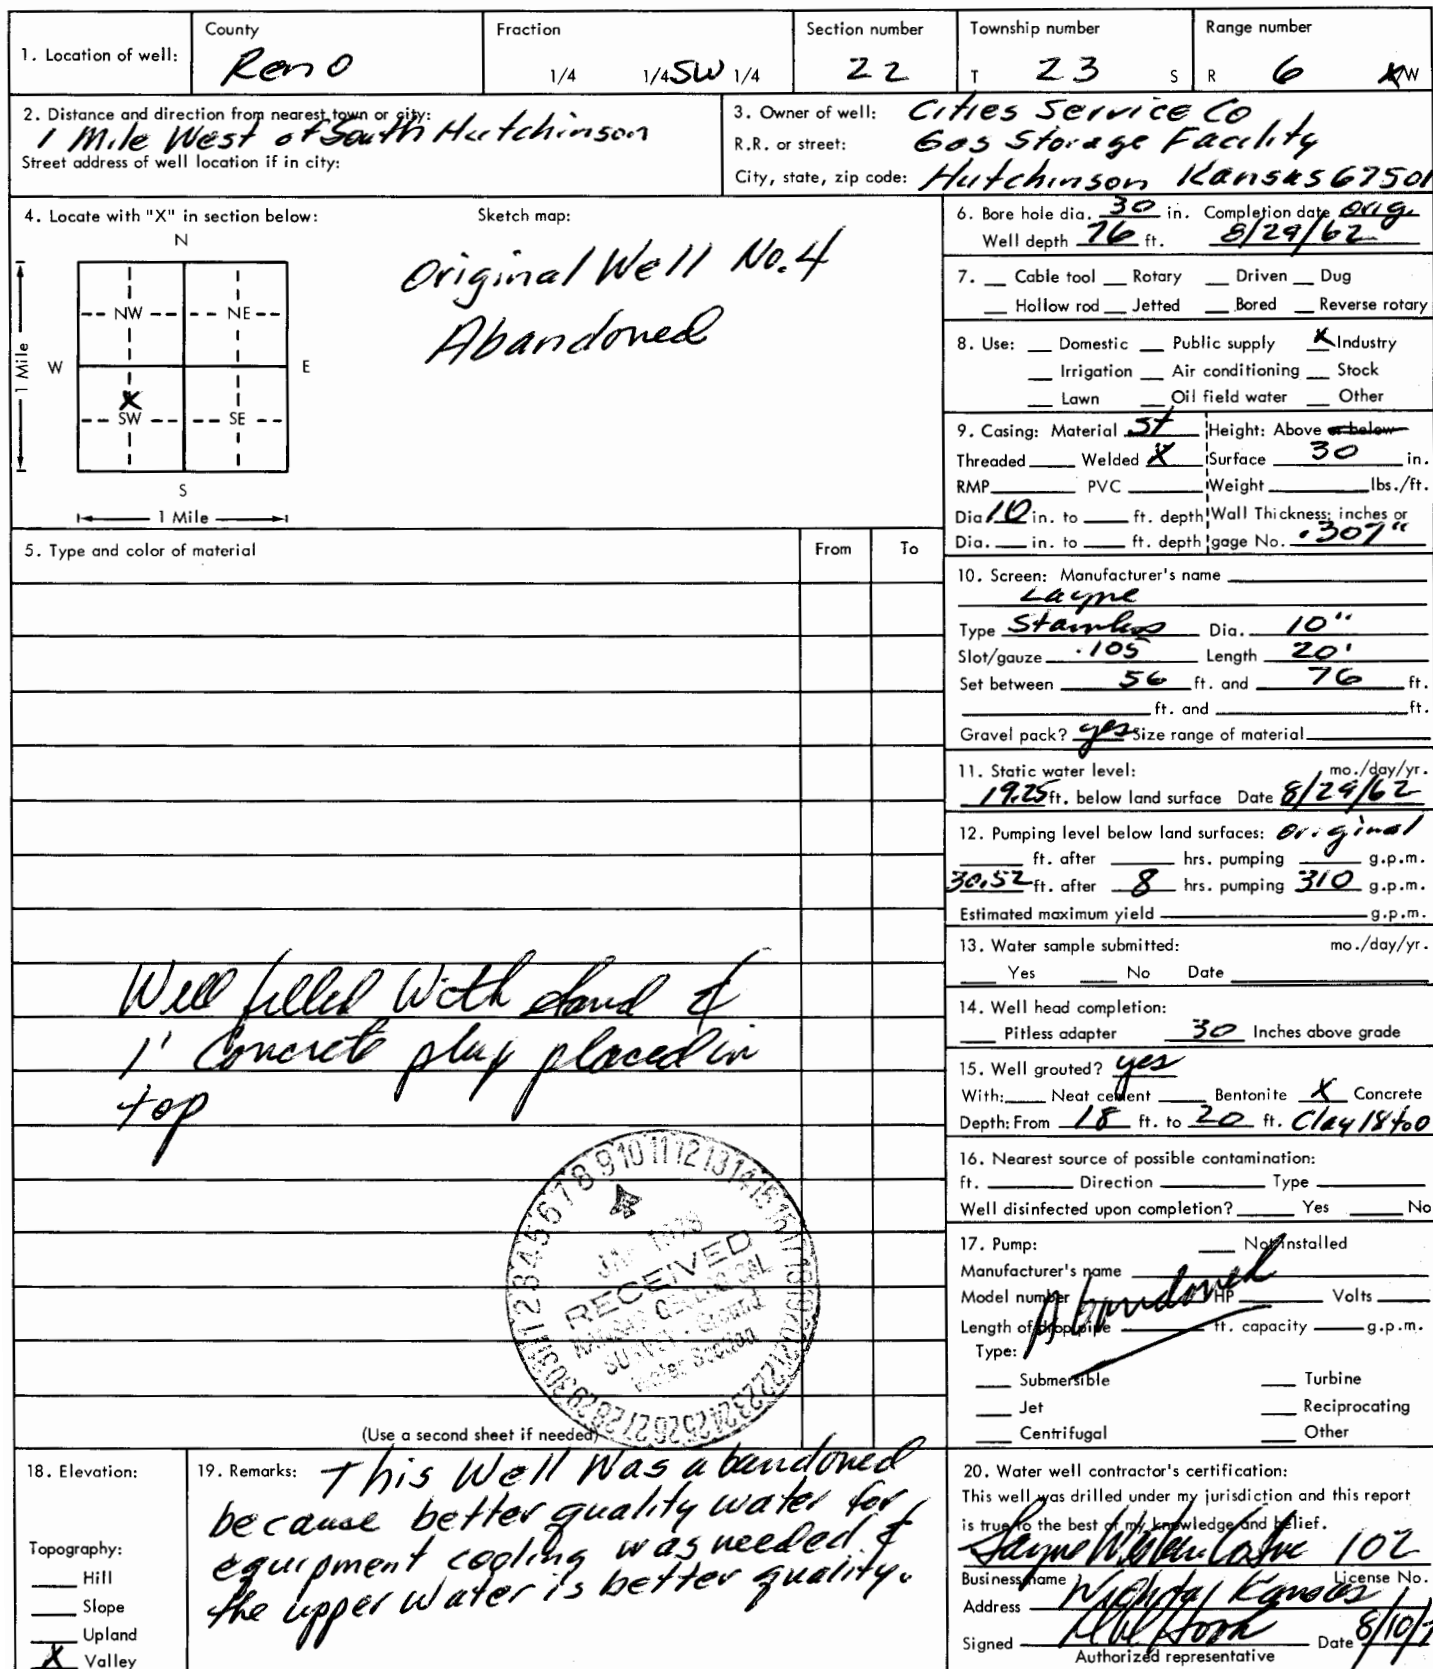 1. Location of well:
County
Reno
Fraction
1/4 1/4 SW 1/4
Section number
22
Township number
T 23 S
Range number
R 6 W
2. Distance and direction from nearest town or city:
1 Mile West of South Hutchinson
Street address of well location if in city:
3. Owner of well: Cities Service Co
R.R. or street: Gas Storage Facility
City, state, zip code: Hutchinson Kansas 67501
4. Locate with "X" in section below:
Sketch map:
Original Well No. 4
Abandoned
N
NW NE
W E
X
SW SE
S
1 Mile
1 Mile
5. Type and color of material From To
Well filled With sand &
1' Concrete plug placed in
top
(Use a second sheet if needed)
6. Bore hole dia. 30 in. Completion date Orig.
Well depth 76 ft. 8/29/62
7. Cable tool Rotary Driven Dug
Hollow rod Jetted Bored Reverse rotary
8. Use: Domestic Public supply X Industry
Irrigation Air conditioning Stock
Lawn Oil field water Other
9. Casing: Material St Height: Above or below
Threaded Welded X Surface 30 in.
RMP PVC Weight lbs./ft.
Dia 10 in. to ft. depth Wall Thickness: inches or
Dia. in. to ft. depth gage No. .307"
10. Screen: Manufacturer's name
Layne
Type Stainless Dia. 10"
Slot/gauze .105 Length 20'
Set between 56 ft. and 76 ft.
ft. and ft.
Gravel pack? yes Size range of material
11. Static water level: mo./day/yr.
19.25 ft. below land surface Date 8/29/62
12. Pumping level below land surfaces: Original
ft. after hrs. pumping g.p.m.
30.52 ft. after 8 hrs. pumping 310 g.p.m.
Estimated maximum yield g.p.m.
13. Water sample submitted: mo./day/yr.
Yes No Date
14. Well head completion:
Pitless adapter 30 Inches above grade
15. Well grouted? yes
With: Neat cement Bentonite X Concrete
Depth: From 18 ft. to 20 ft. Clay 18 to 0
16. Nearest source of possible contamination:
ft. Direction Type
Well disinfected upon completion? Yes No
17. Pump: Not installed
Manufacturer's name
Model number HP Volts
Length of drop pipe ft. capacity g.p.m.
Abandoned
Type:
Submersible Turbine
Jet Reciprocating
Centrifugal Other
RECEIVED
KANSAS GEOLOGICAL
SURVEY - Ground
Water Section
18. Elevation:
Topography:
Hill
Slope
Upland
X Valley
19. Remarks: This Well Was abandoned
because better quality water for
equipment cooling was needed &
the upper water is better quality.
20. Water well contractor's certification:
This well was drilled under my jurisdiction and this report
is true to the best of my knowledge and belief.
Layne Western Co Inc 102
Business name License No.
Address Wichita, Kansas
Signed Date 8/10/
Authorized representative